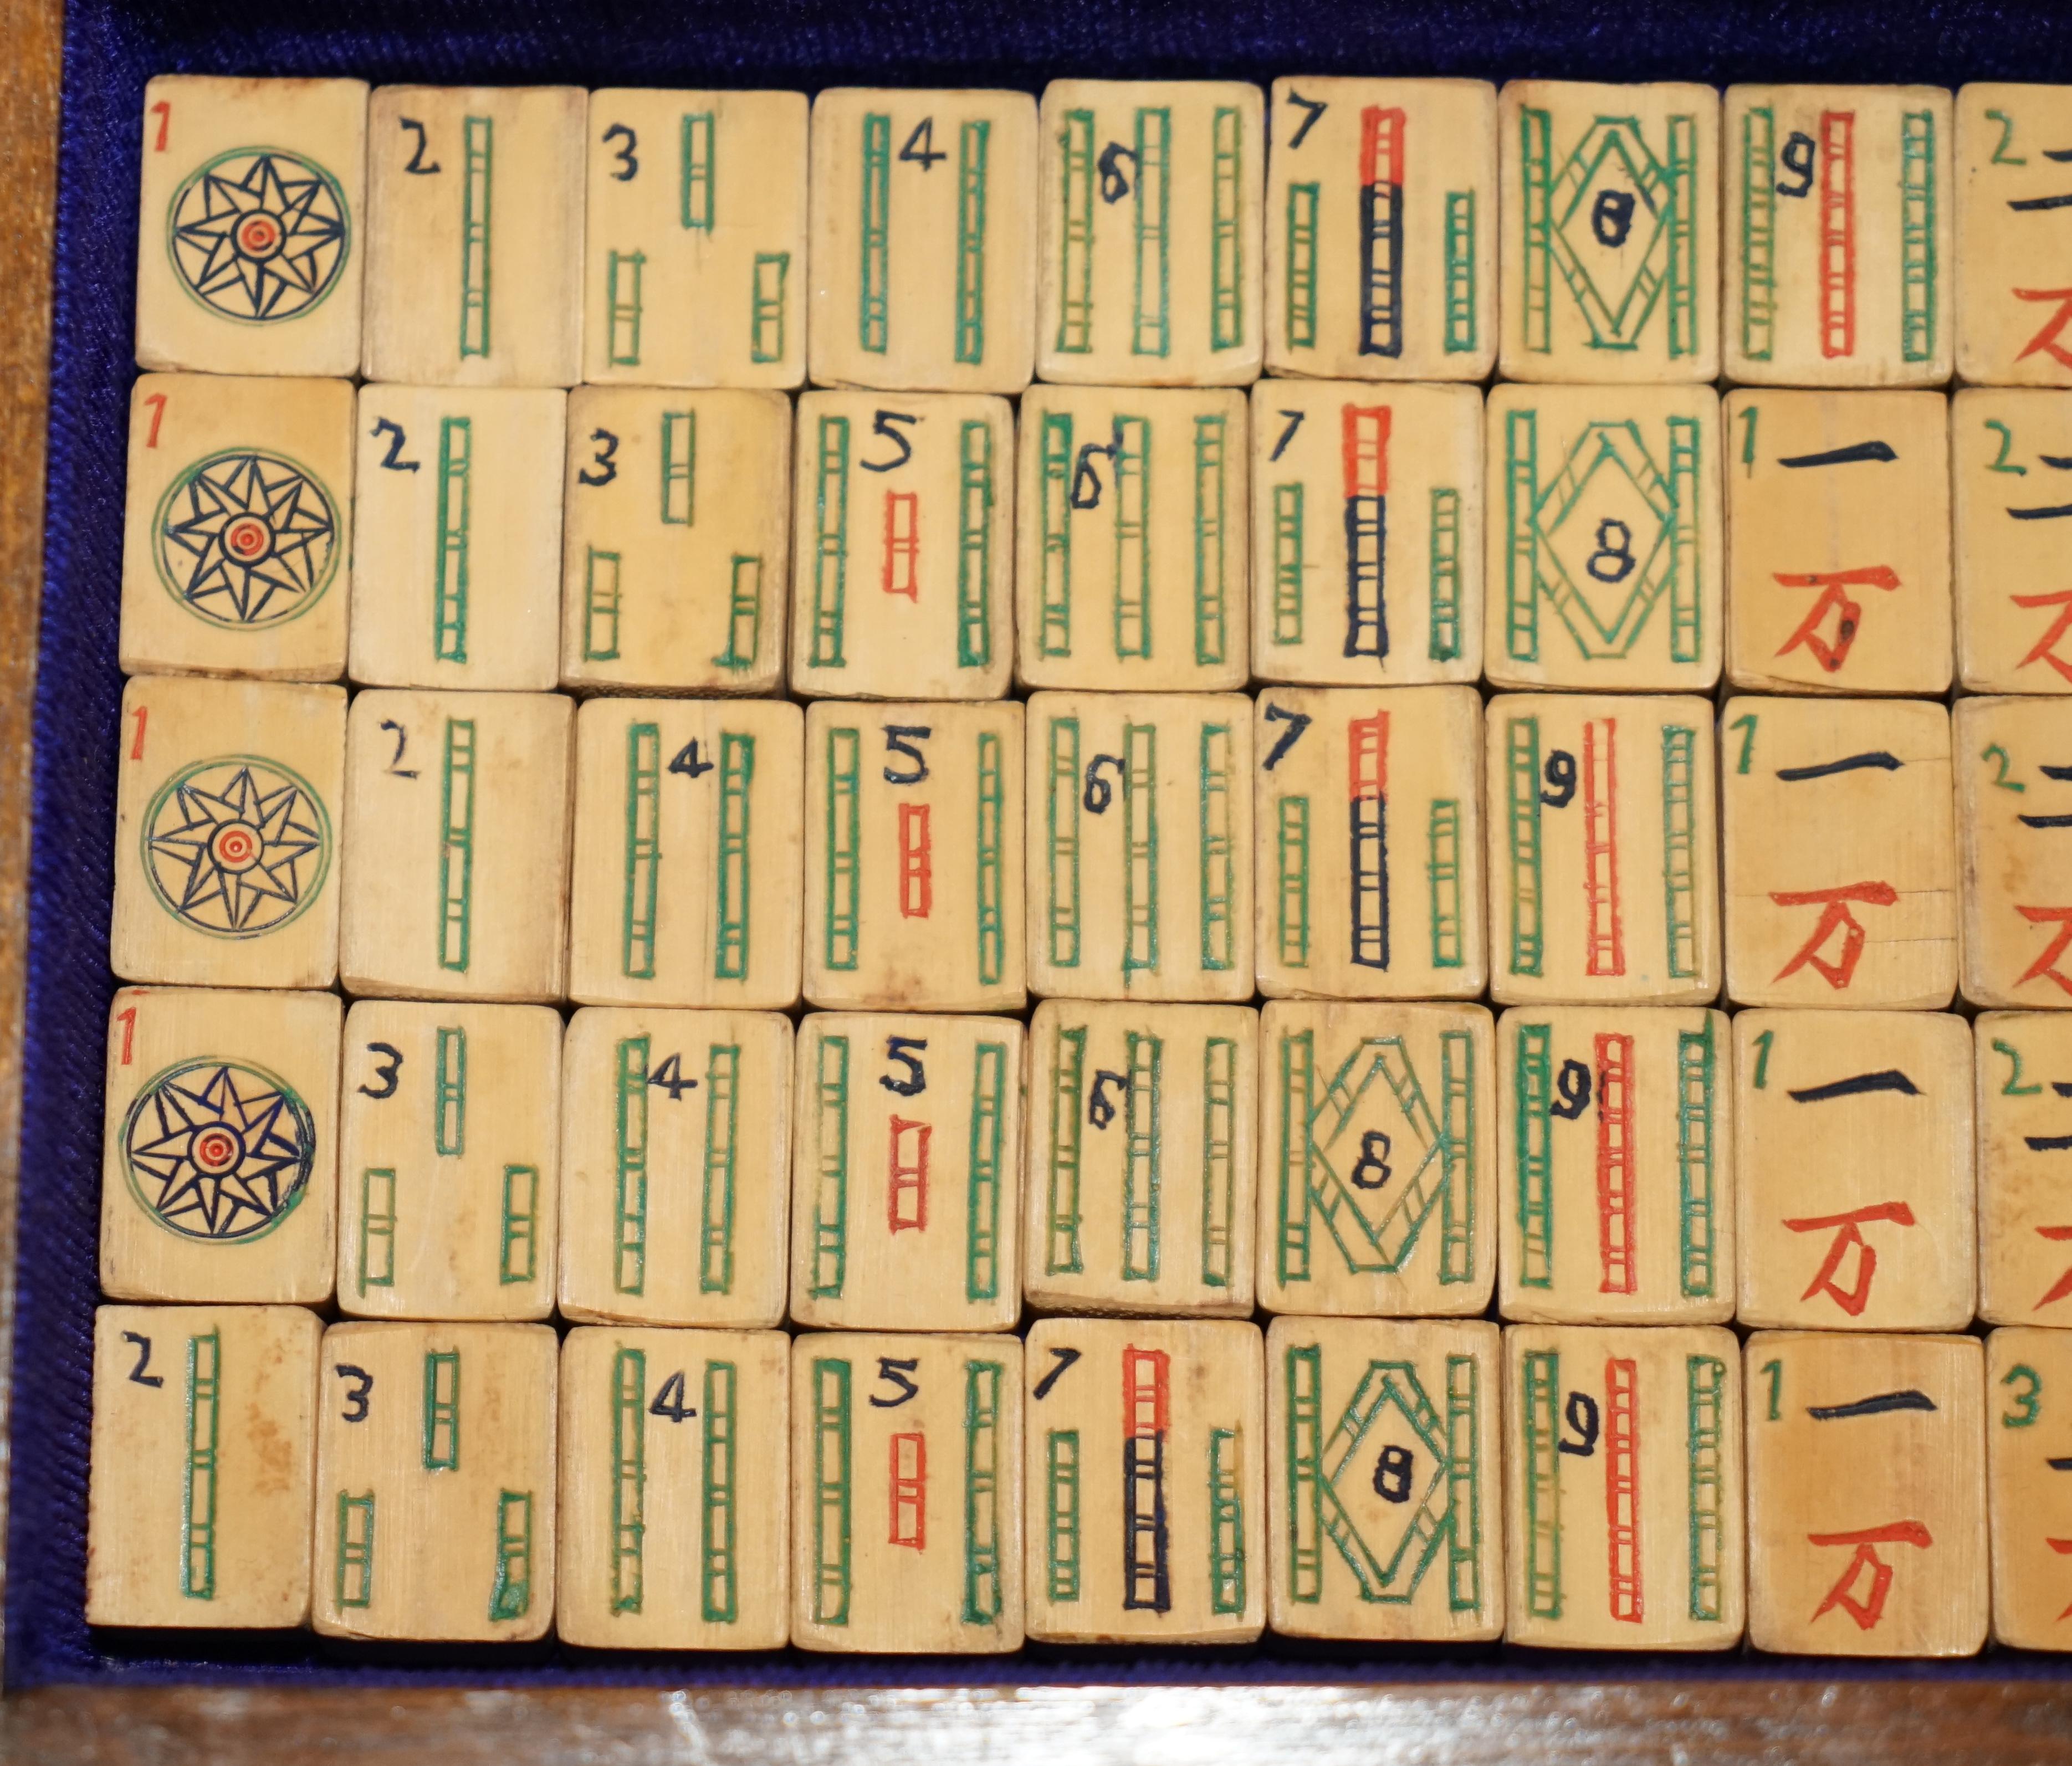 1 2 3 4 6 7 8 9 2 二
万
1 2 3 5 6 7 8 1 一 2 二
万 万
1 2 4 5 6 7 9 1 一 2 二
万 万
1 3 4 5 6 8 9 1 一 2 二
万 万
2 3 4 5 7 8 9 1 一 3
万